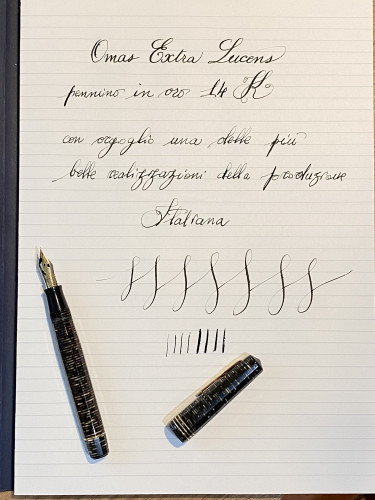 Omas Extra Lucens
pennino in oro 14 K
con orgoglio una delle più
belle realizzazioni della produzione
Italiana